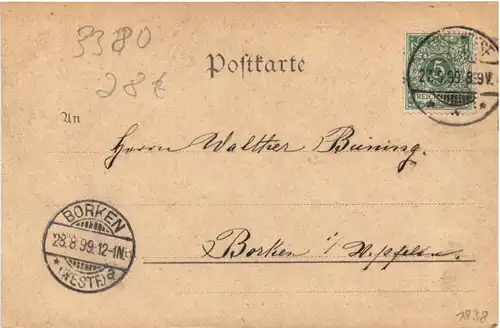 3380
28 €
Postkarte
5
REICHSPOST
23.8.99. 8-9V.
An
Herrn Walther Büning.
BORKEN
23.8.99.12-1N.
* (WESTF) a
Borken i/Westfalen.
1838